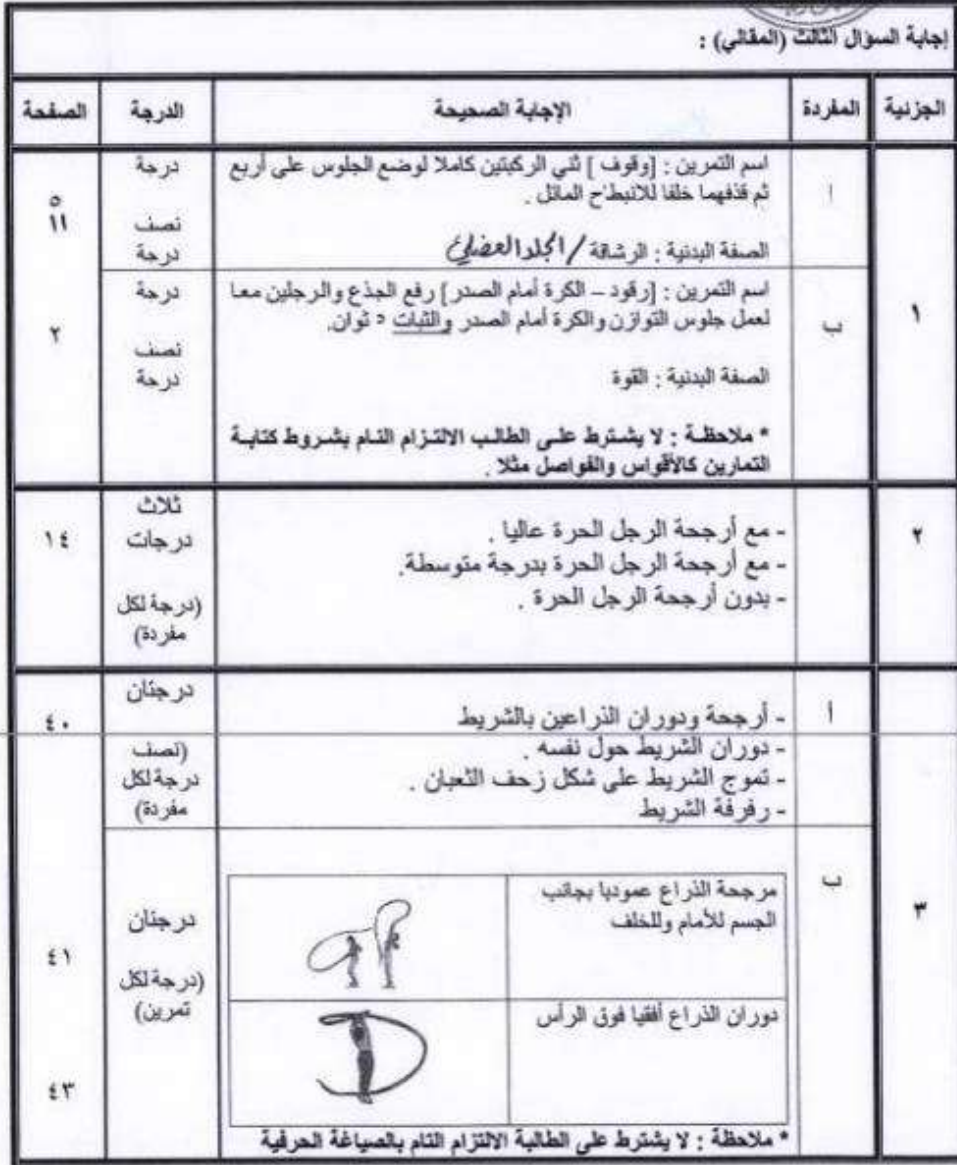 إجابة السؤال الثالث (المقالي) :
الجزئية المفردة الإجابة الصحيحة الدرجة الصفحة
١
أ
اسم التمرين : [وقوف ] ثني الركبتين كاملا لوضع الجلوس على أربع
ثم قذفهما خلفا للانبطاح المائل .
الصفة البدنية : الرشاقة / الجلد العضلي
درجة
نصف
درجة
٥
١١
ب
اسم التمرين : [رقود – الكرة أمام الصدر] رفع الجذع والرجلين معا
لعمل جلوس التوازن والكرة أمام الصدر والثبات ٥ ثوان.
الصفة البدنية : القوة
* ملاحظة : لا يشترط على الطالب الالتزام التام بشروط كتابة
التمارين كالأقواس والفواصل مثلا .
درجة
نصف
درجة
٢
٢
- مع أرجحة الرجل الحرة عاليا .
- مع أرجحة الرجل الحرة بدرجة متوسطة.
- بدون أرجحة الرجل الحرة .
ثلاث
درجات
(درجة لكل
مفردة)
١٤
٣
أ
- أرجحة ودوران الذراعين بالشريط
- دوران الشريط حول نفسه .
- تموج الشريط على شكل زحف الثعبان .
- رفرفة الشريط
درجتان
(نصف
درجة لكل
مفردة)
٤٠
ب
مرجحة الذراع عموديا بجانب
الجسم للأمام وللخلف
دوران الذراع أفقيا فوق الرأس
* ملاحظة : لا يشترط على الطالبة الالتزام التام بالصياغة الحرفية
درجتان
(درجة لكل
تمرين)
٤١
٤٣